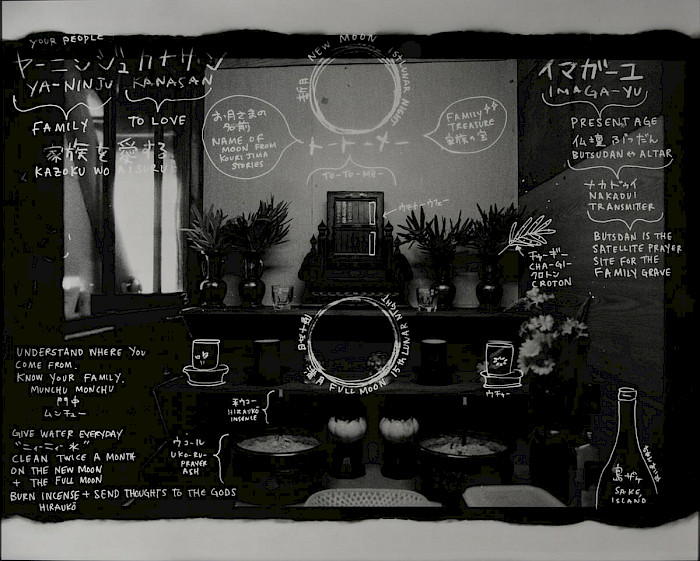 YOUR PEOPLE
ヤーニンジュ カナサン
YA-NINJU KANASAN
FAMILY
TO LOVE
家族を愛する
KAZOKU WO AISURU
NEW MOON 1ST LUNAR NIGHT
お月さまの
名前
NAME OF
MOON FROM
KOURI JIMA
STORIES
トートーメー
TO-TO-ME-
FAMILY
TREASURE
家族の宝
イマガーユ
IMAGA-YU
PRESENT AGE
仏壇 ぶつだん
BUTSUDAN ↔ ALTAR
ナカドゥイ
NAKADUI
TRANSMITTER
BUTSDAN IS THE
SATELLITE PRAYER
SITE FOR THE
FAMILY GRAVE
チャーギー
CHA-GI-
クロトン
CROTON
満月 FULL MOON 15TH LUNAR NIGHT
UNDERSTAND WHERE YOU
COME FROM.
KNOW YOUR FAMILY.
MUNCHU MONCHU
門中
ムンチュー
GIVE WATER EVERYDAY
CLEAN TWICE A MONTH
ON THE NEW MOON
+ THE FULL MOON
BURN INCENSE + SEND THOUGHTS TO THE GODS
HIRAUKŌ
HIRAUKŌ
INSENCE
ウコール
UKO-RU-
PRAYER
ASH
ウチャー
島ザケ
SAKE,
ISLAND